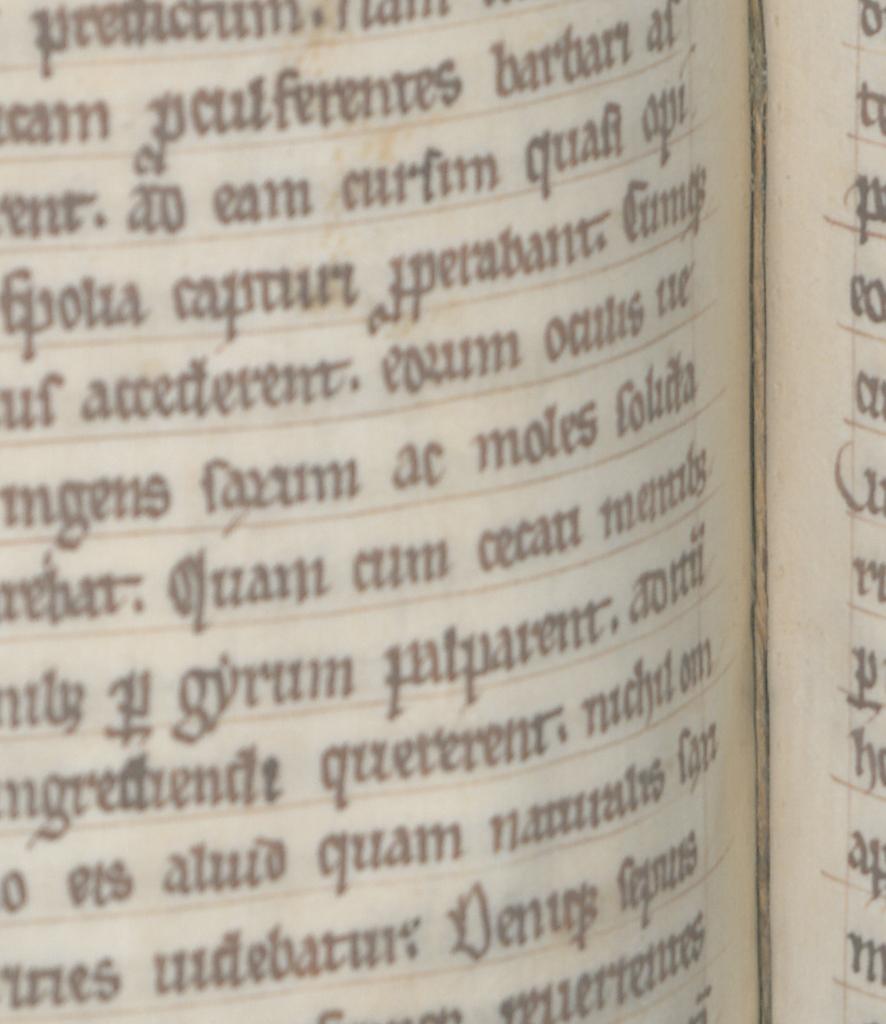 predictum. Nam
p̱culferentes barbari as
rent. ad eam cursim quasi opi
spolia capturi ꝓperabant. Cumqꝫ
us accederent. eorum oculis ue
ingens saxum ac moles solida
Quam cum cecati mentibꝫ
ꝑ gyrum palparent. aditū
ingrediendi quererent. nichil om
o eis aliud quam naturalis sax
uidebatur. Deniqꝫ sepius
reuertentes